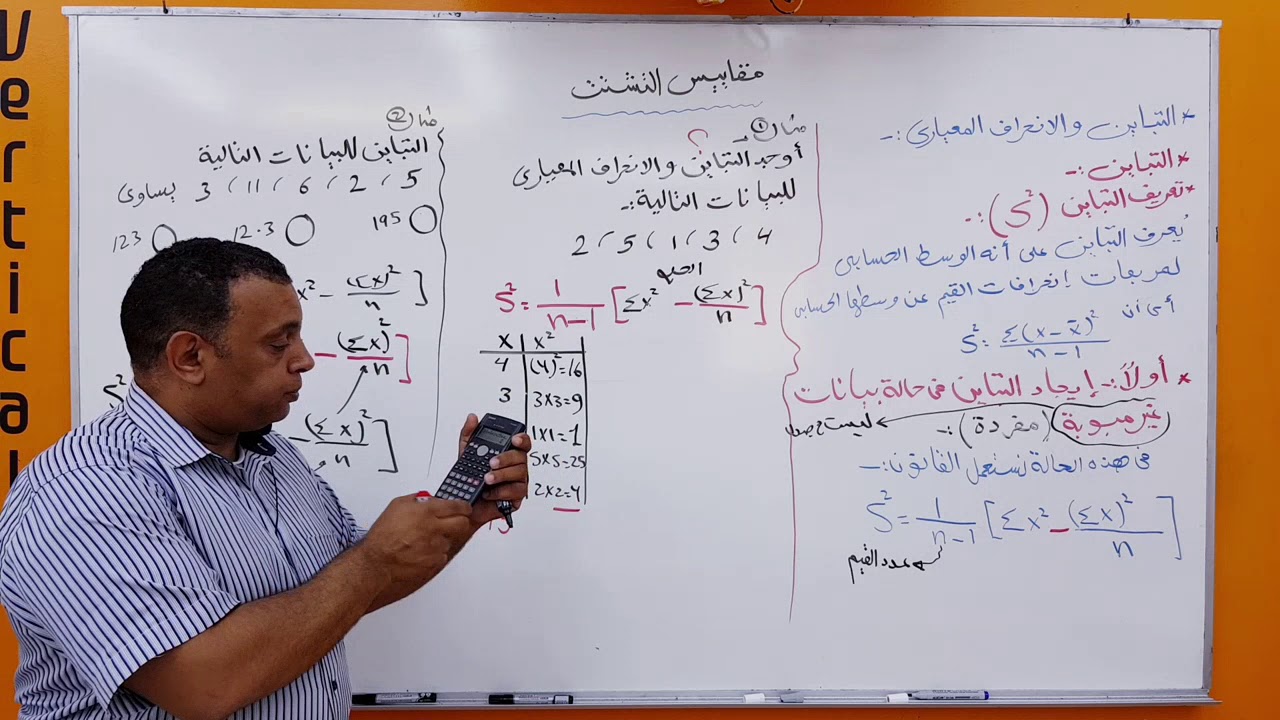 Vertical
مقاييس التشتت
* التباين والانحراف المعيارى :-
* التباين :-
* تعريف التباين (S²) :-
يُعرف التباين على أنه الوسط الحسابى
لمربعات إنحرافات القيم عن وسطها الحسابى
أى أن
S² = Σ(x - x̄)² / n-1
* أولاً :- إيجاد التباين فى حالة بيانات
غير مبوبة (مفردة) :-
فى هذه الحالة نستعمل القانون :-
S² = 1/n-1 [Σx² - (Σx)²/n]
عدد القيم
مثال ①
أوجد التباين والانحراف المعيارى ؟
للبيانات التالية :-
4 ، 3 ، 1 ، 5 ، 2
الحل
S² = 1/n-1 [Σx² - (Σx)²/n]
x | x²
4 | (4)²=16
3 | 3x3=9
1x1=1
5x5=25
2x2=4
مثال ②
التباين للبيانات التالية
5 ، 2 ، 6 ، 11 ، 3 يساوى
195 12.3 123
x² - (Σx)²/n ]
- (Σx)²/n ]
S²
- (Σx)²/n ]